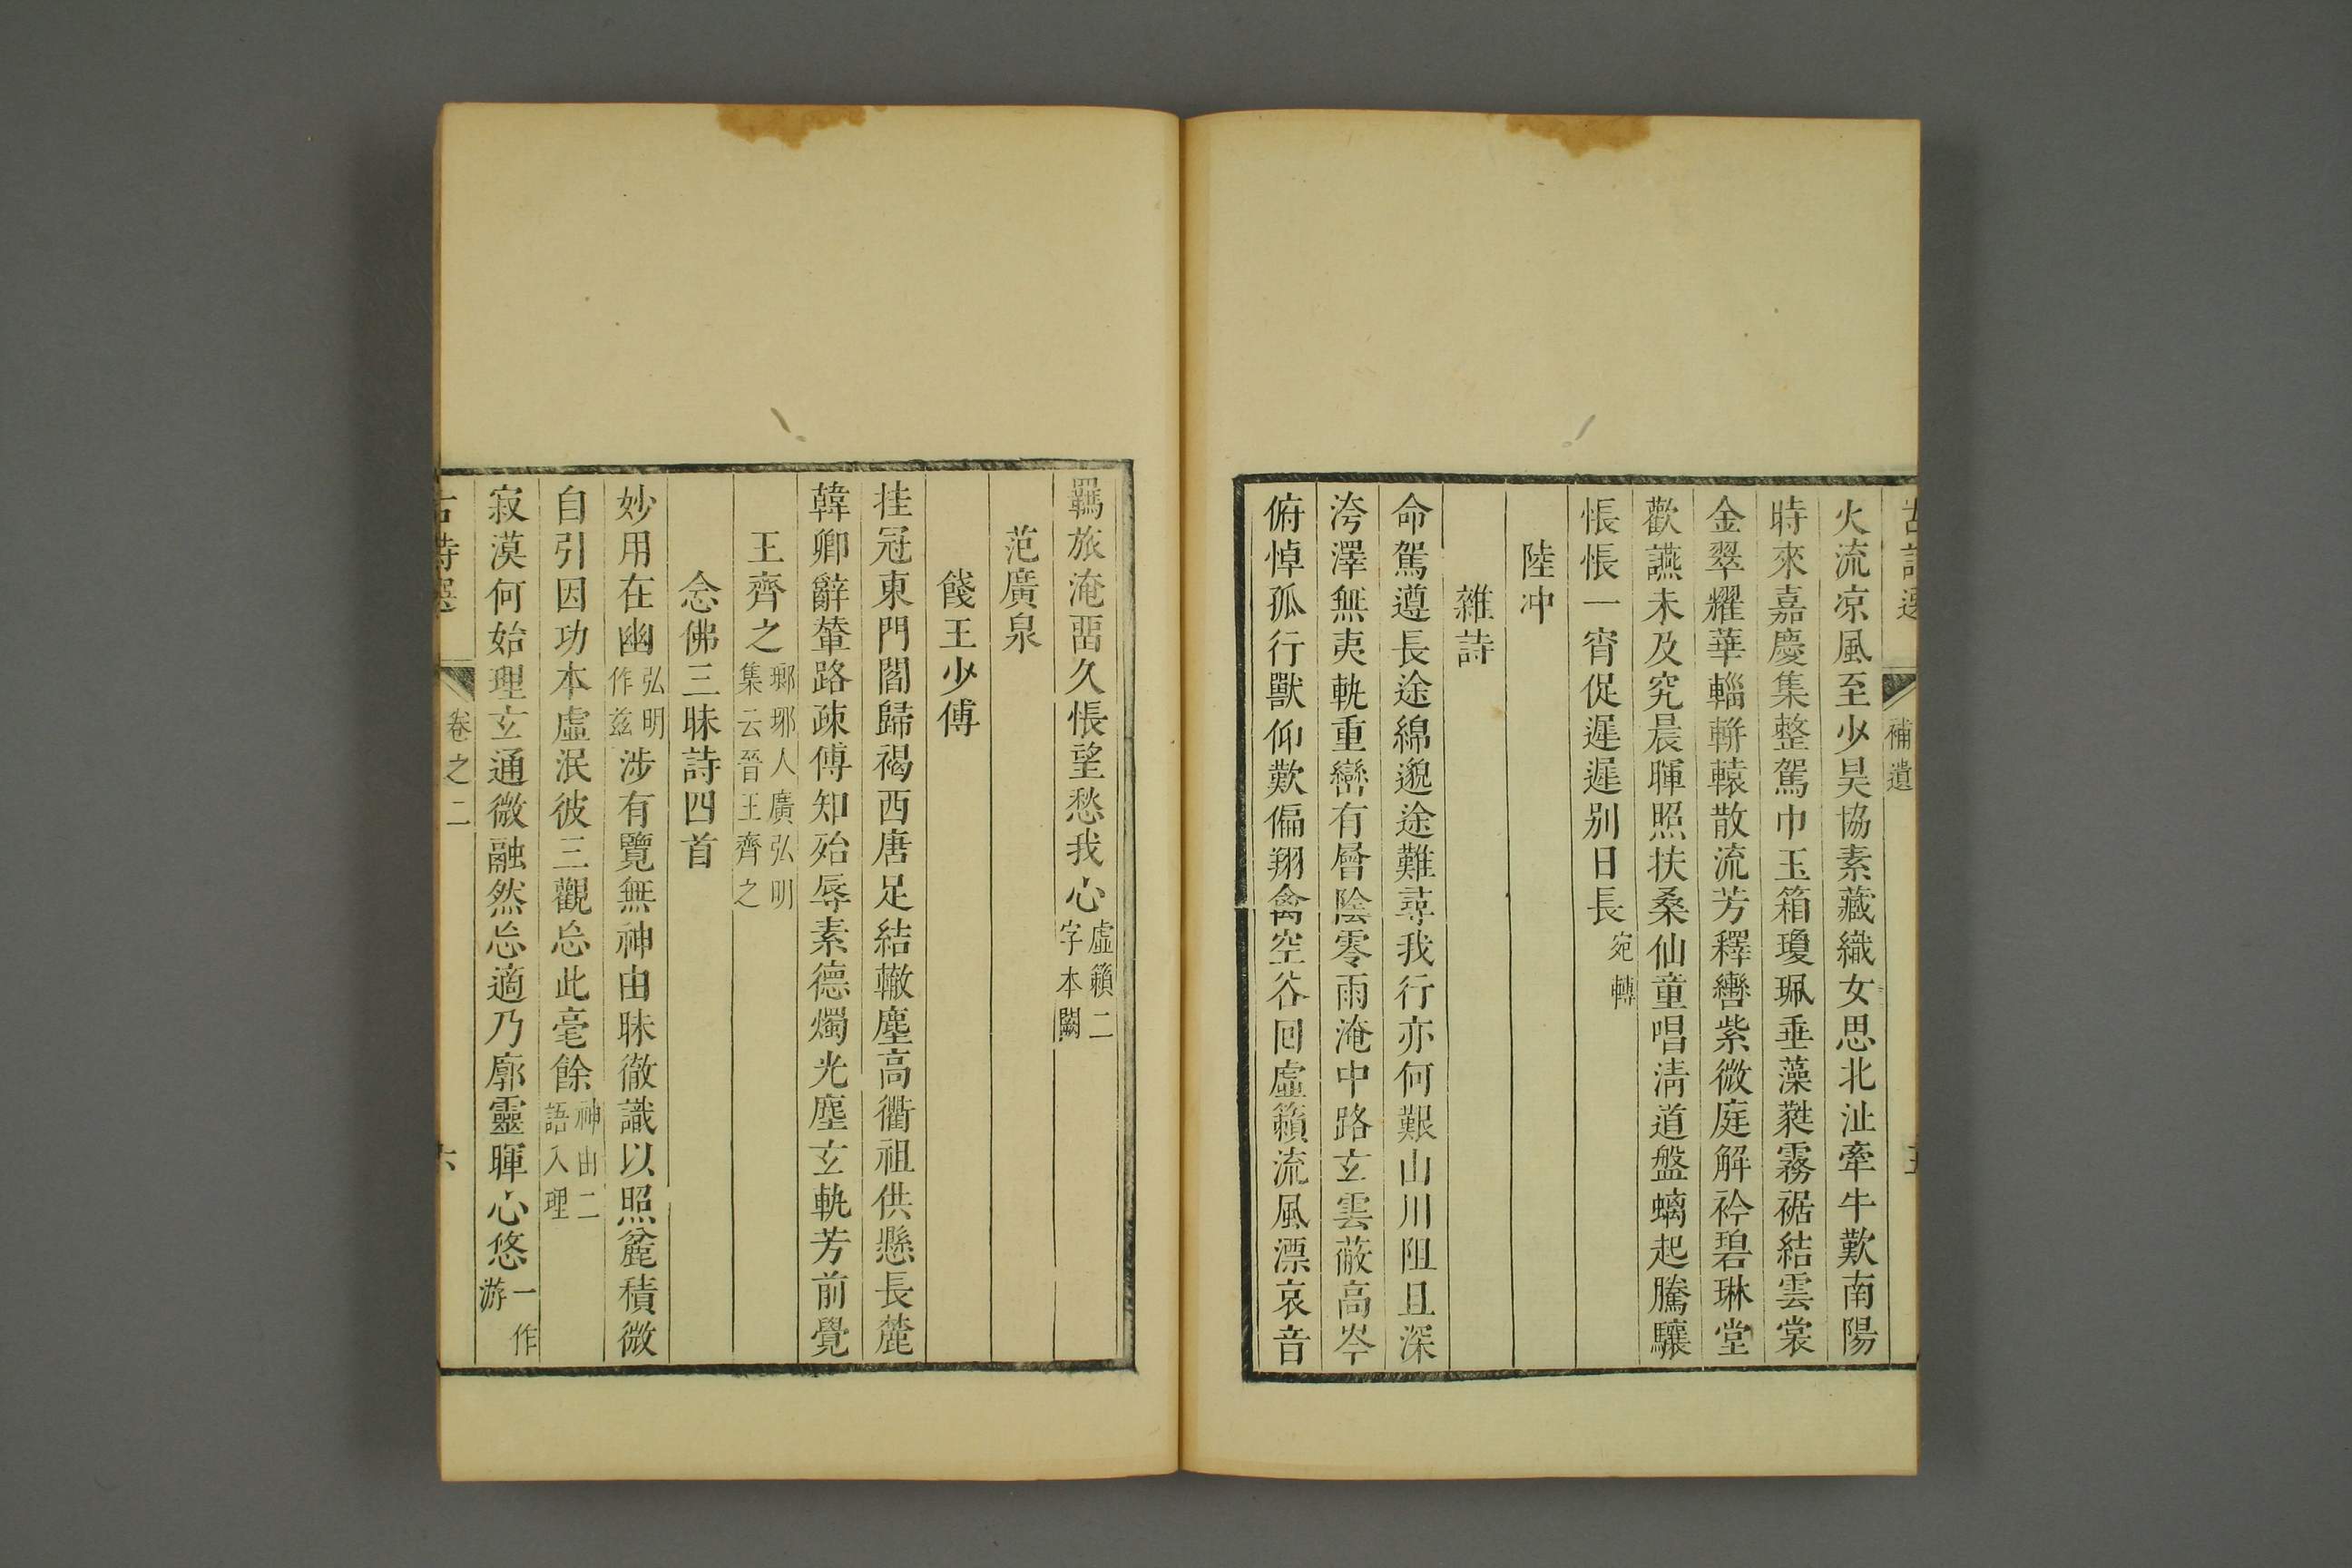 古詩選 補遺 五
火流凉風至少昊協素藏織女思北沚牽牛歎南陽
時來嘉慶集整駕巾玉箱瓊珮垂藻蕤霧裾結雲裳
金翠耀華輜軿轅散流芳釋轡紫微庭解衿碧琳堂
歡讌未及究晨暉照扶桑仙童唱清道盤螭起騰驤
悵悵一宵促遲遲别日長宛轉
陸冲
雜詩
命駕遵長途綿邈途難尋我行亦何艱山川阻且深
洿澤無夷軌重巒有層陰零雨淹中路玄雲蔽高岑
俯悼孤行獸仰歎偏翔禽空谷回虛籟流風漂哀音
羈旅淹畱久悵望愁我心虛籟二字本闕
范廣泉
餞王少傅
挂冠東門閻歸褐西唐足結轍塵高衢祖供懸長麓
韓卿辭輦路疎傅知殆辱素德燭光塵玄軌芳前覺
王齊之瑯琊人廣弘明集云晉王齊之
念佛三昧詩四首
妙用在幽弘明作兹涉有覽無神由昧徹識以照麄積微
自引因功本虛泯彼三觀忘此毫餘神由二語入理
寂漠何始理玄通微融然忘適乃廓靈暉心悠一作游
古詩選 卷之二 六